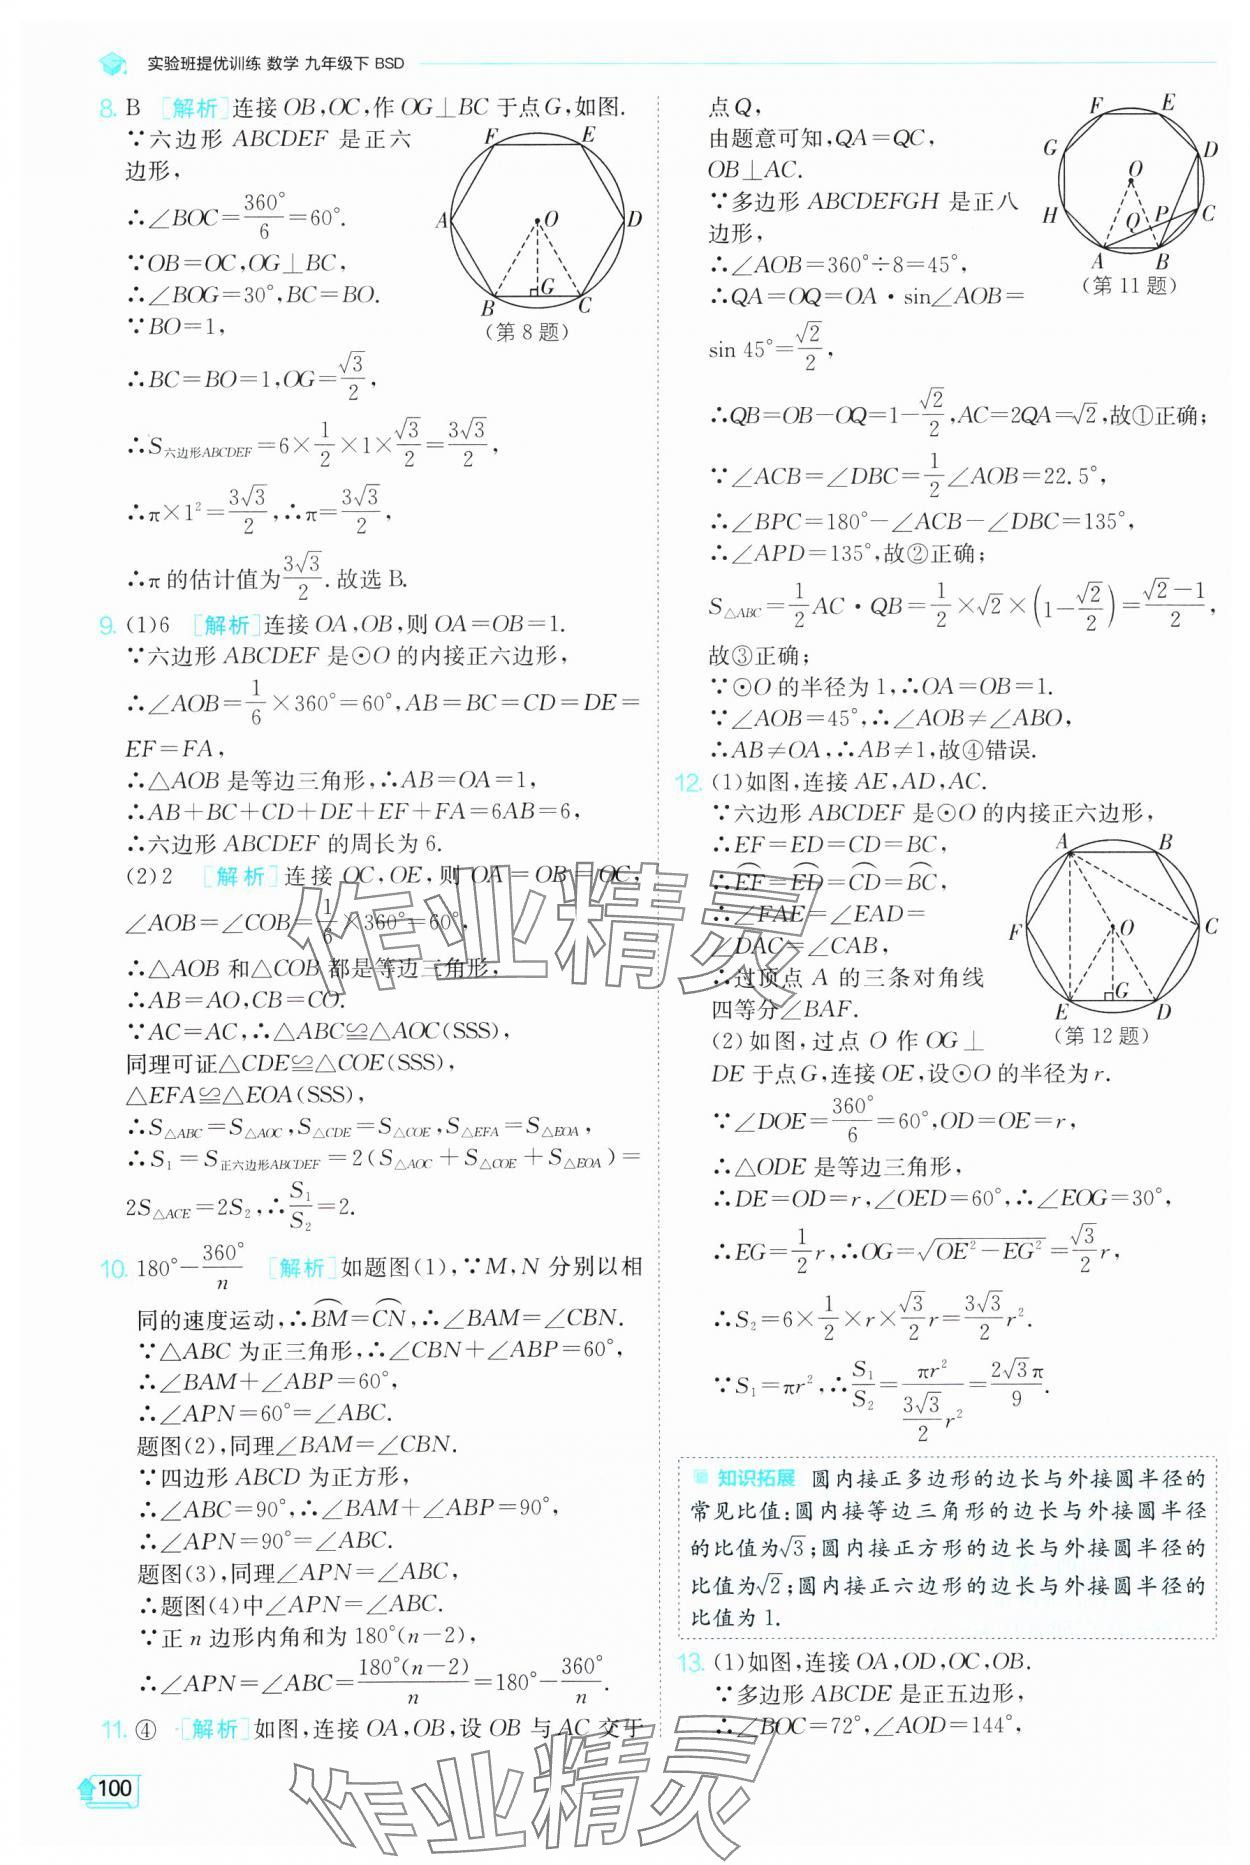 实验班提优训练 数学 九年级下 BSD
8. B [解析]连接 OB,OC,作 OG⊥BC 于点 G,如图.
∵六边形 ABCDEF 是正六
边形,
∴∠BOC=360°/6=60°.
∵OB=OC,OG⊥BC,
∴∠BOG=30°,BC=BO.
∵BO=1,
∴BC=BO=1,OG=√3/2,
∴S六边形ABCDEF=6×1/2×1×√3/2=3√3/2,
∴π×1²=3√3/2,∴π=3√3/2,
∴π 的估计值为3√3/2.故选 B.
F E A O D B G C
(第 8 题)
9. (1)6 [解析]连接 OA,OB,则 OA=OB=1.
∵六边形 ABCDEF 是⊙O 的内接正六边形,
∴∠AOB=1/6×360°=60°,AB=BC=CD=DE=
EF=FA,
∴△AOB 是等边三角形,∴AB=OA=1,
∴AB+BC+CD+DE+EF+FA=6AB=6,
∴六边形 ABCDEF 的周长为 6.
(2)2 [解析]连接 OC,OE,则 OA=OB=OC,
∠AOB=∠COB=1/6×360°=60°,
∴△AOB 和△COB 都是等边三角形,
∴AB=AO,CB=CO.
∵AC=AC,∴△ABC≌△AOC(SSS),
同理可证△CDE≌△COE(SSS),
△EFA≌△EOA(SSS),
∴S△ABC=S△AOC,S△CDE=S△COE,S△EFA=S△EOA,
∴S₁=S正六边形ABCDEF=2(S△AOC+S△COE+S△EOA)=
2S△ACE=2S₂,∴S₁/S₂=2.
10. 180°-360°/n [解析]如题图(1),∵M,N 分别以相
同的速度运动,∴⌒BM=⌒CN,∴∠BAM=∠CBN.
∵△ABC 为正三角形,∴∠CBN+∠ABP=60°,
∴∠BAM+∠ABP=60°,
∴∠APN=60°=∠ABC.
题图(2),同理∠BAM=∠CBN.
∵四边形 ABCD 为正方形,
∴∠ABC=90°,∴∠BAM+∠ABP=90°,
∴∠APN=90°=∠ABC.
题图(3),同理∠APN=∠ABC,
∴题图(4)中∠APN=∠ABC.
∵正 n 边形内角和为 180°(n-2),
∴∠APN=∠ABC=180°(n-2)/n=180°-360°/n.
11. ④ [解析]如图,连接 OA,OB,设 OB 与 AC 交于
点 Q,
由题意可知,QA=QC,
OB⊥AC.
∵多边形 ABCDEFGH 是正八
边形,
∴∠AOB=360°÷8=45°,
∴QA=OQ=OA·sin∠AOB=
sin 45°=√2/2,
∴QB=OB-OQ=1-√2/2,AC=2QA=√2,故①正确;
∵∠ACB=∠DBC=1/2∠AOB=22.5°,
∴∠BPC=180°-∠ACB-∠DBC=135°,
∴∠APD=135°,故②正确;
S△ABC=1/2AC·QB=1/2×√2×(1-√2/2)=(√2-1)/2,
故③正确;
∵⊙O 的半径为 1,∴OA=OB=1.
∵∠AOB=45°,∴∠AOB≠∠ABO,
∴AB≠OA,∴AB≠1,故④错误.
F E G D O H Q P C A B
(第 11 题)
12. (1)如图,连接 AE,AD,AC.
∵六边形 ABCDEF 是⊙O 的内接正六边形,
∴EF=ED=CD=BC,
∴⌒EF=⌒ED=⌒CD=⌒BC,
∴∠FAE=∠EAD=
∠DAC=∠CAB,
∴过顶点 A 的三条对角线
四等分∠BAF.
(2)如图,过点 O 作 OG⊥
DE 于点 G,连接 OE,设⊙O 的半径为 r.
∵∠DOE=360°/6=60°,OD=OE=r,
∴△ODE 是等边三角形,
∴DE=OD=r,∠OED=60°,∴∠EOG=30°,
∴EG=1/2r,∴OG=√(OE²-EG²)=√3/2r,
∴S₂=6×1/2×r×√3/2r=3√3/2r².
∵S₁=πr²,∴S₁/S₂=πr²/(3√3/2r²)=2√3π/9.
A B F O C G E D
(第 12 题)
知识拓展 圆内接正多边形的边长与外接圆半径的
常见比值:圆内接等边三角形的边长与外接圆半径
的比值为√3;圆内接正方形的边长与外接圆半径的
比值为√2;圆内接正六边形的边长与外接圆半径的
比值为 1.
13. (1)如图,连接 OA,OD,OC,OB.
∵多边形 ABCDE 是正五边形,
∴∠BOC=72°,∠AOD=144°,
100
作业精灵
作业精灵